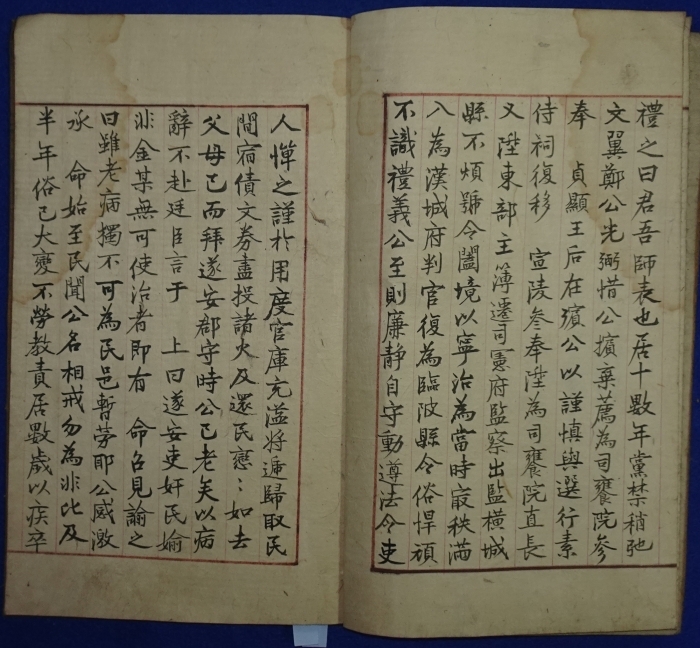 禮之曰君吾師表也居十數年黨禁稍弛
文翼鄭公光弼惜公擯棄薦為司饔院參
奉　貞顯王后在殯公以謹慎與選行素
侍祠復移　宣陵參奉陞為司饔院直長
又陞東部主簿遷司憲府監察出監橫城
縣不煩號令闔境以寧治為當時最秩滿
入為漢城府判官復為臨陂縣令俗悍頑
不識禮義公至則廉静自守動遵法令吏
人憚之謹於用度官庫充溢将遞歸取民
間宿債文券盡投諸火及還民戀〻如去
父母已而拜遂安郡守時公已老矣以病
辭不赴廷臣言于　上曰遂安吏奸民媮
非金某無可使治者即有　命召見諭之
曰雖老病獨不可為民邑暫勞耶公感激
承　命始至民聞公名相戒勿為非比及
半年俗已大變不勞教責居數歲以疾卒